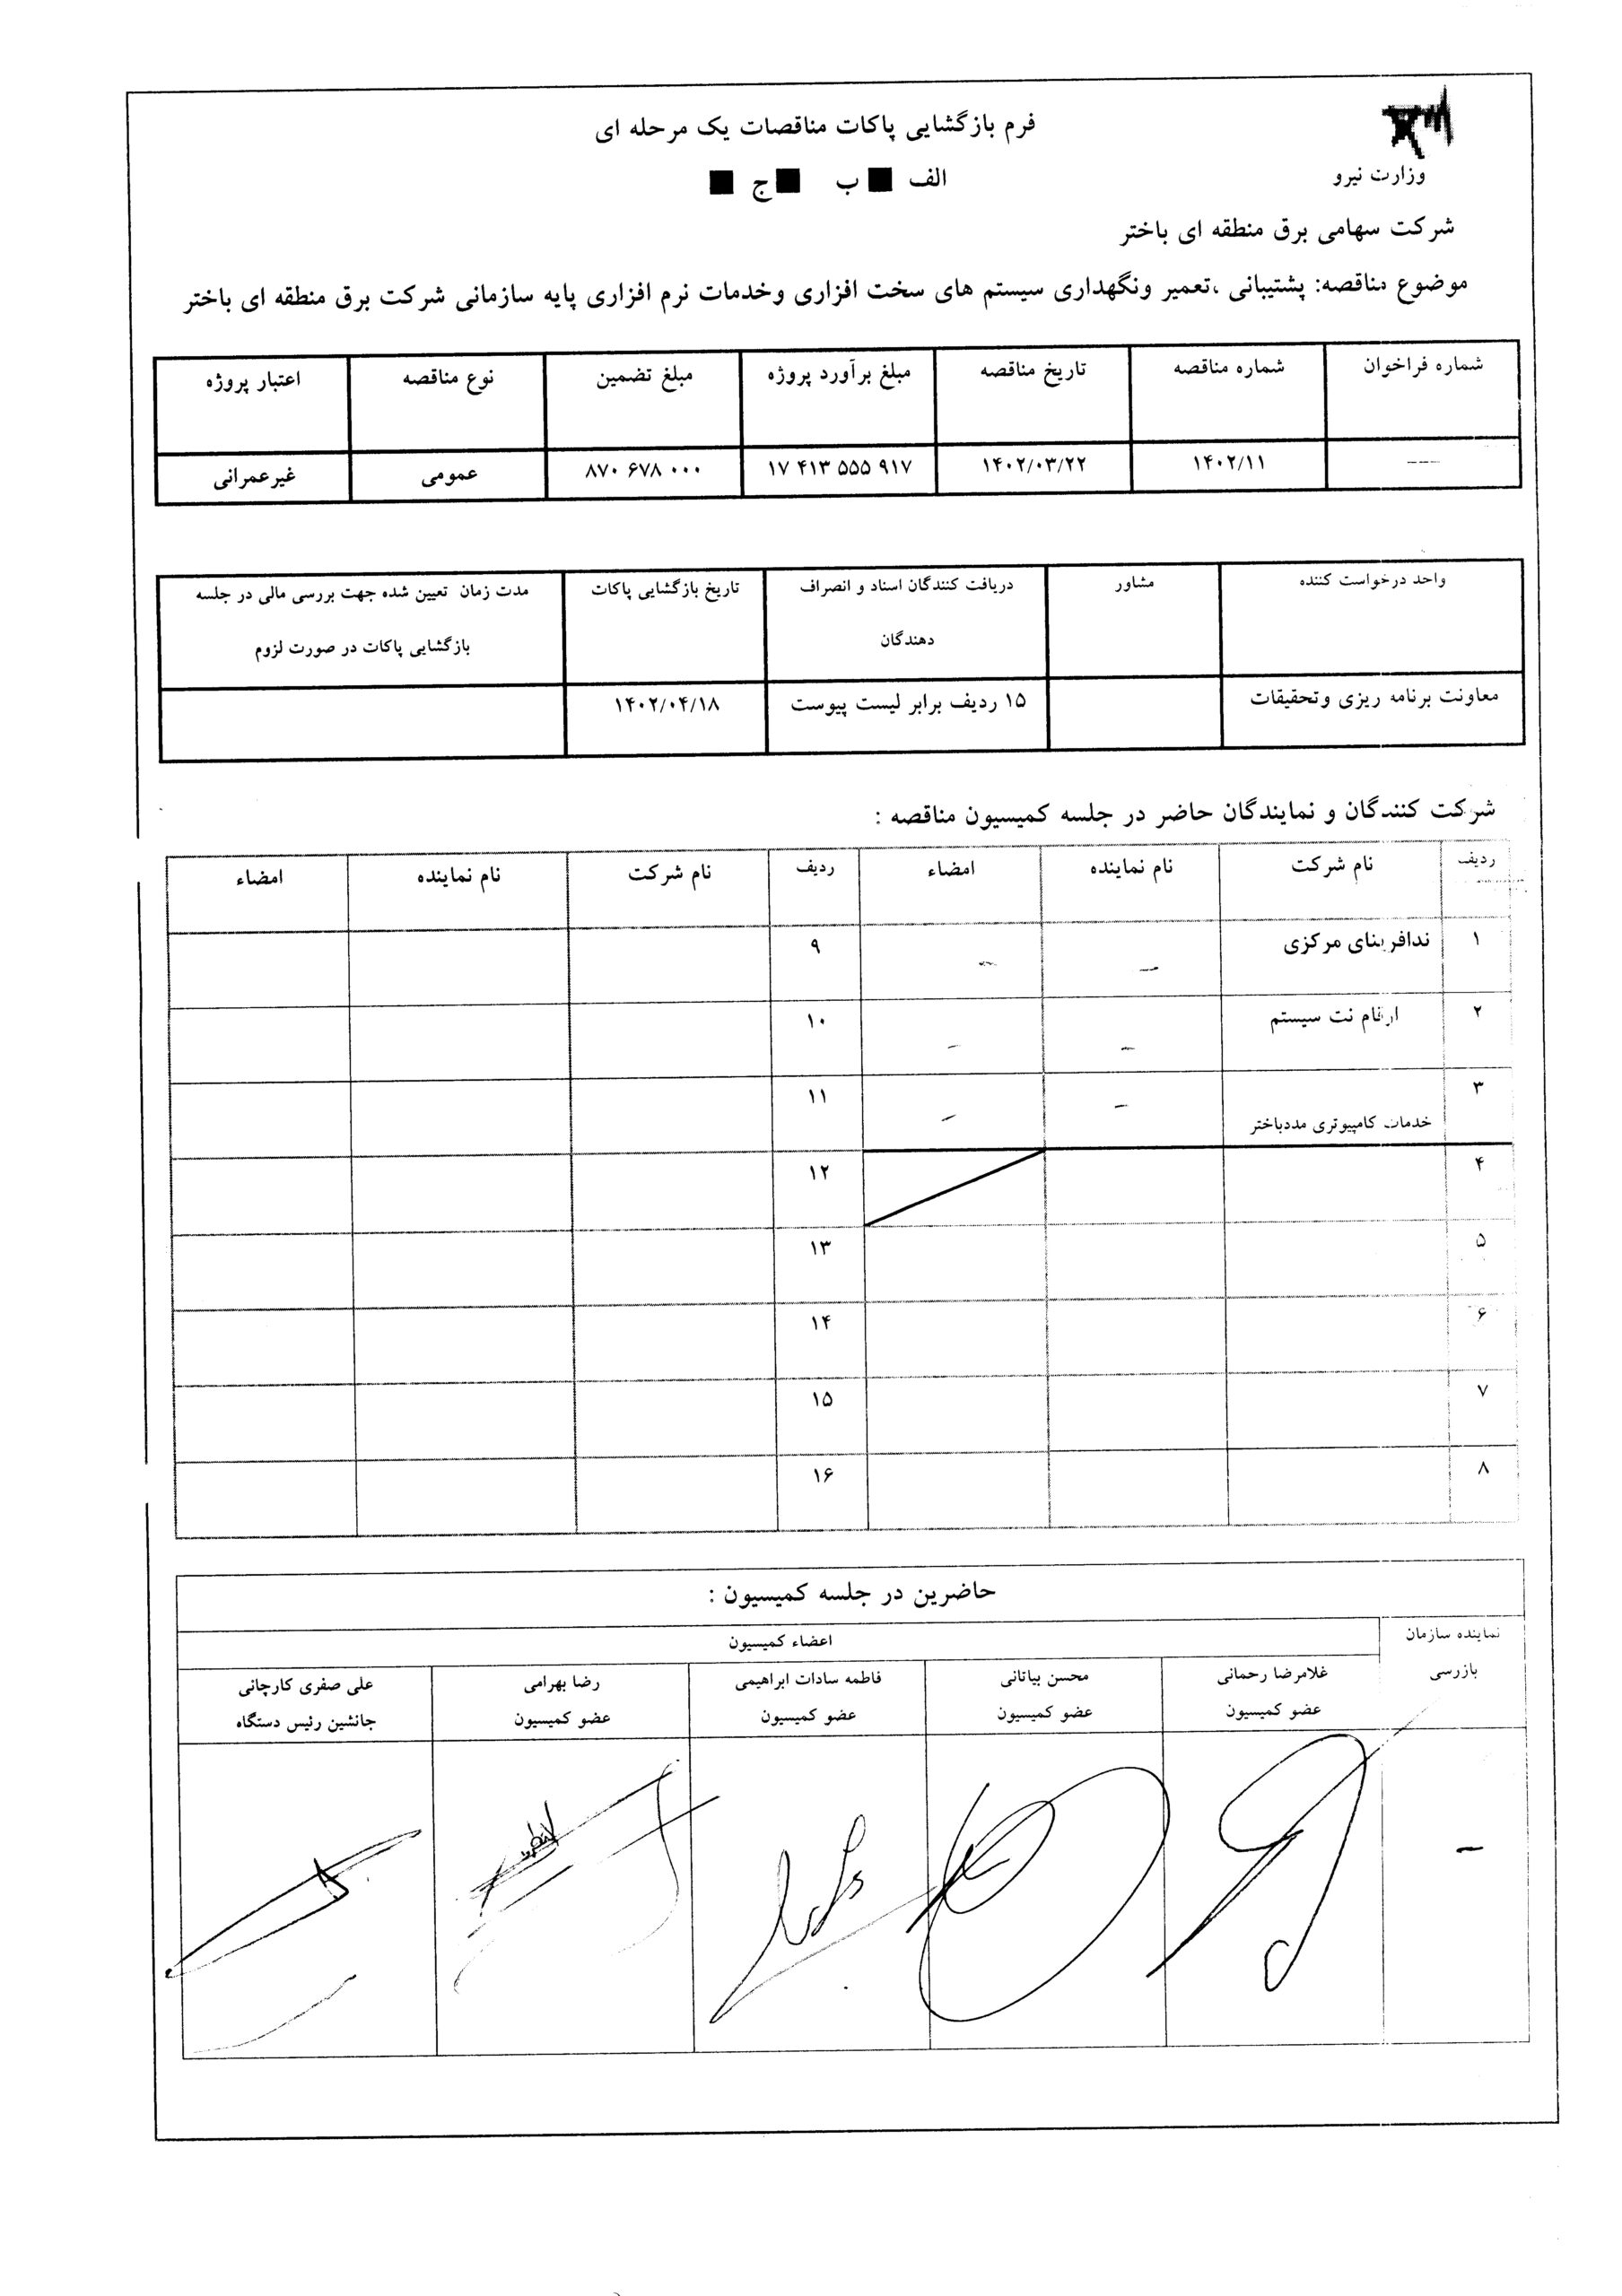 وزارت نیرو
فرم بازگشایی پاکات مناقصات یک مرحله ای
الف ■ ب ■ ج ■
شرکت سهامی برق منطقه ای باختر
موضوع مناقصه: پشتیبانی ،تعمیر ونگهداری سیستم های سخت افزاری وخدمات نرم افزاری پایه سازمانی شرکت برق منطقه ای باختر
شماره فراخوان شماره مناقصه تاریخ مناقصه مبلغ برآورد پروژه مبلغ تضمین نوع مناقصه اعتبار پروژه
--- ۱۴۰۲/۱۱ ۱۴۰۲/۰۳/۲۲ ۱۷ ۴۱۳ ۵۵۵ ۹۱۷ ۸۷۰ ۶۷۸ ۰۰۰ عمومی غیرعمرانی
واحد درخواست کننده مشاور دریافت کنندگان اسناد و انصراف تاریخ بازگشایی پاکات مدت زمان تعیین شده جهت بررسی مالی در جلسه
دهندگان بازگشایی پاکات در صورت لزوم
معاونت برنامه ریزی وتحقیقات ۱۵ ردیف برابر لیست پیوست ۱۴۰۲/۰۴/۱۸
شرکت کنندگان و نمایندگان حاضر در جلسه کمیسیون مناقصه :
ردیف نام شرکت نام نماینده امضاء ردیف نام شرکت نام نماینده امضاء
۱ ندافرینای مرکزی - - ۹
۲ ارقام نت سیستم - - ۱۰
۳ خدمات کامپیوتری مددباختر - - ۱۱
۴ ۱۲
۵ ۱۳
۶ ۱۴
۷ ۱۵
۸ ۱۶
حاضرین در جلسه کمیسیون :
نماینده سازمان اعضاء کمیسیون
بازرسی غلامرضا رحمانی محسن بیاتانی فاطمه سادات ابراهیمی رضا بهرامی علی صفری کارچانی
عضو کمیسیون عضو کمیسیون عضو کمیسیون عضو کمیسیون جانشین رئیس دستگاه
-